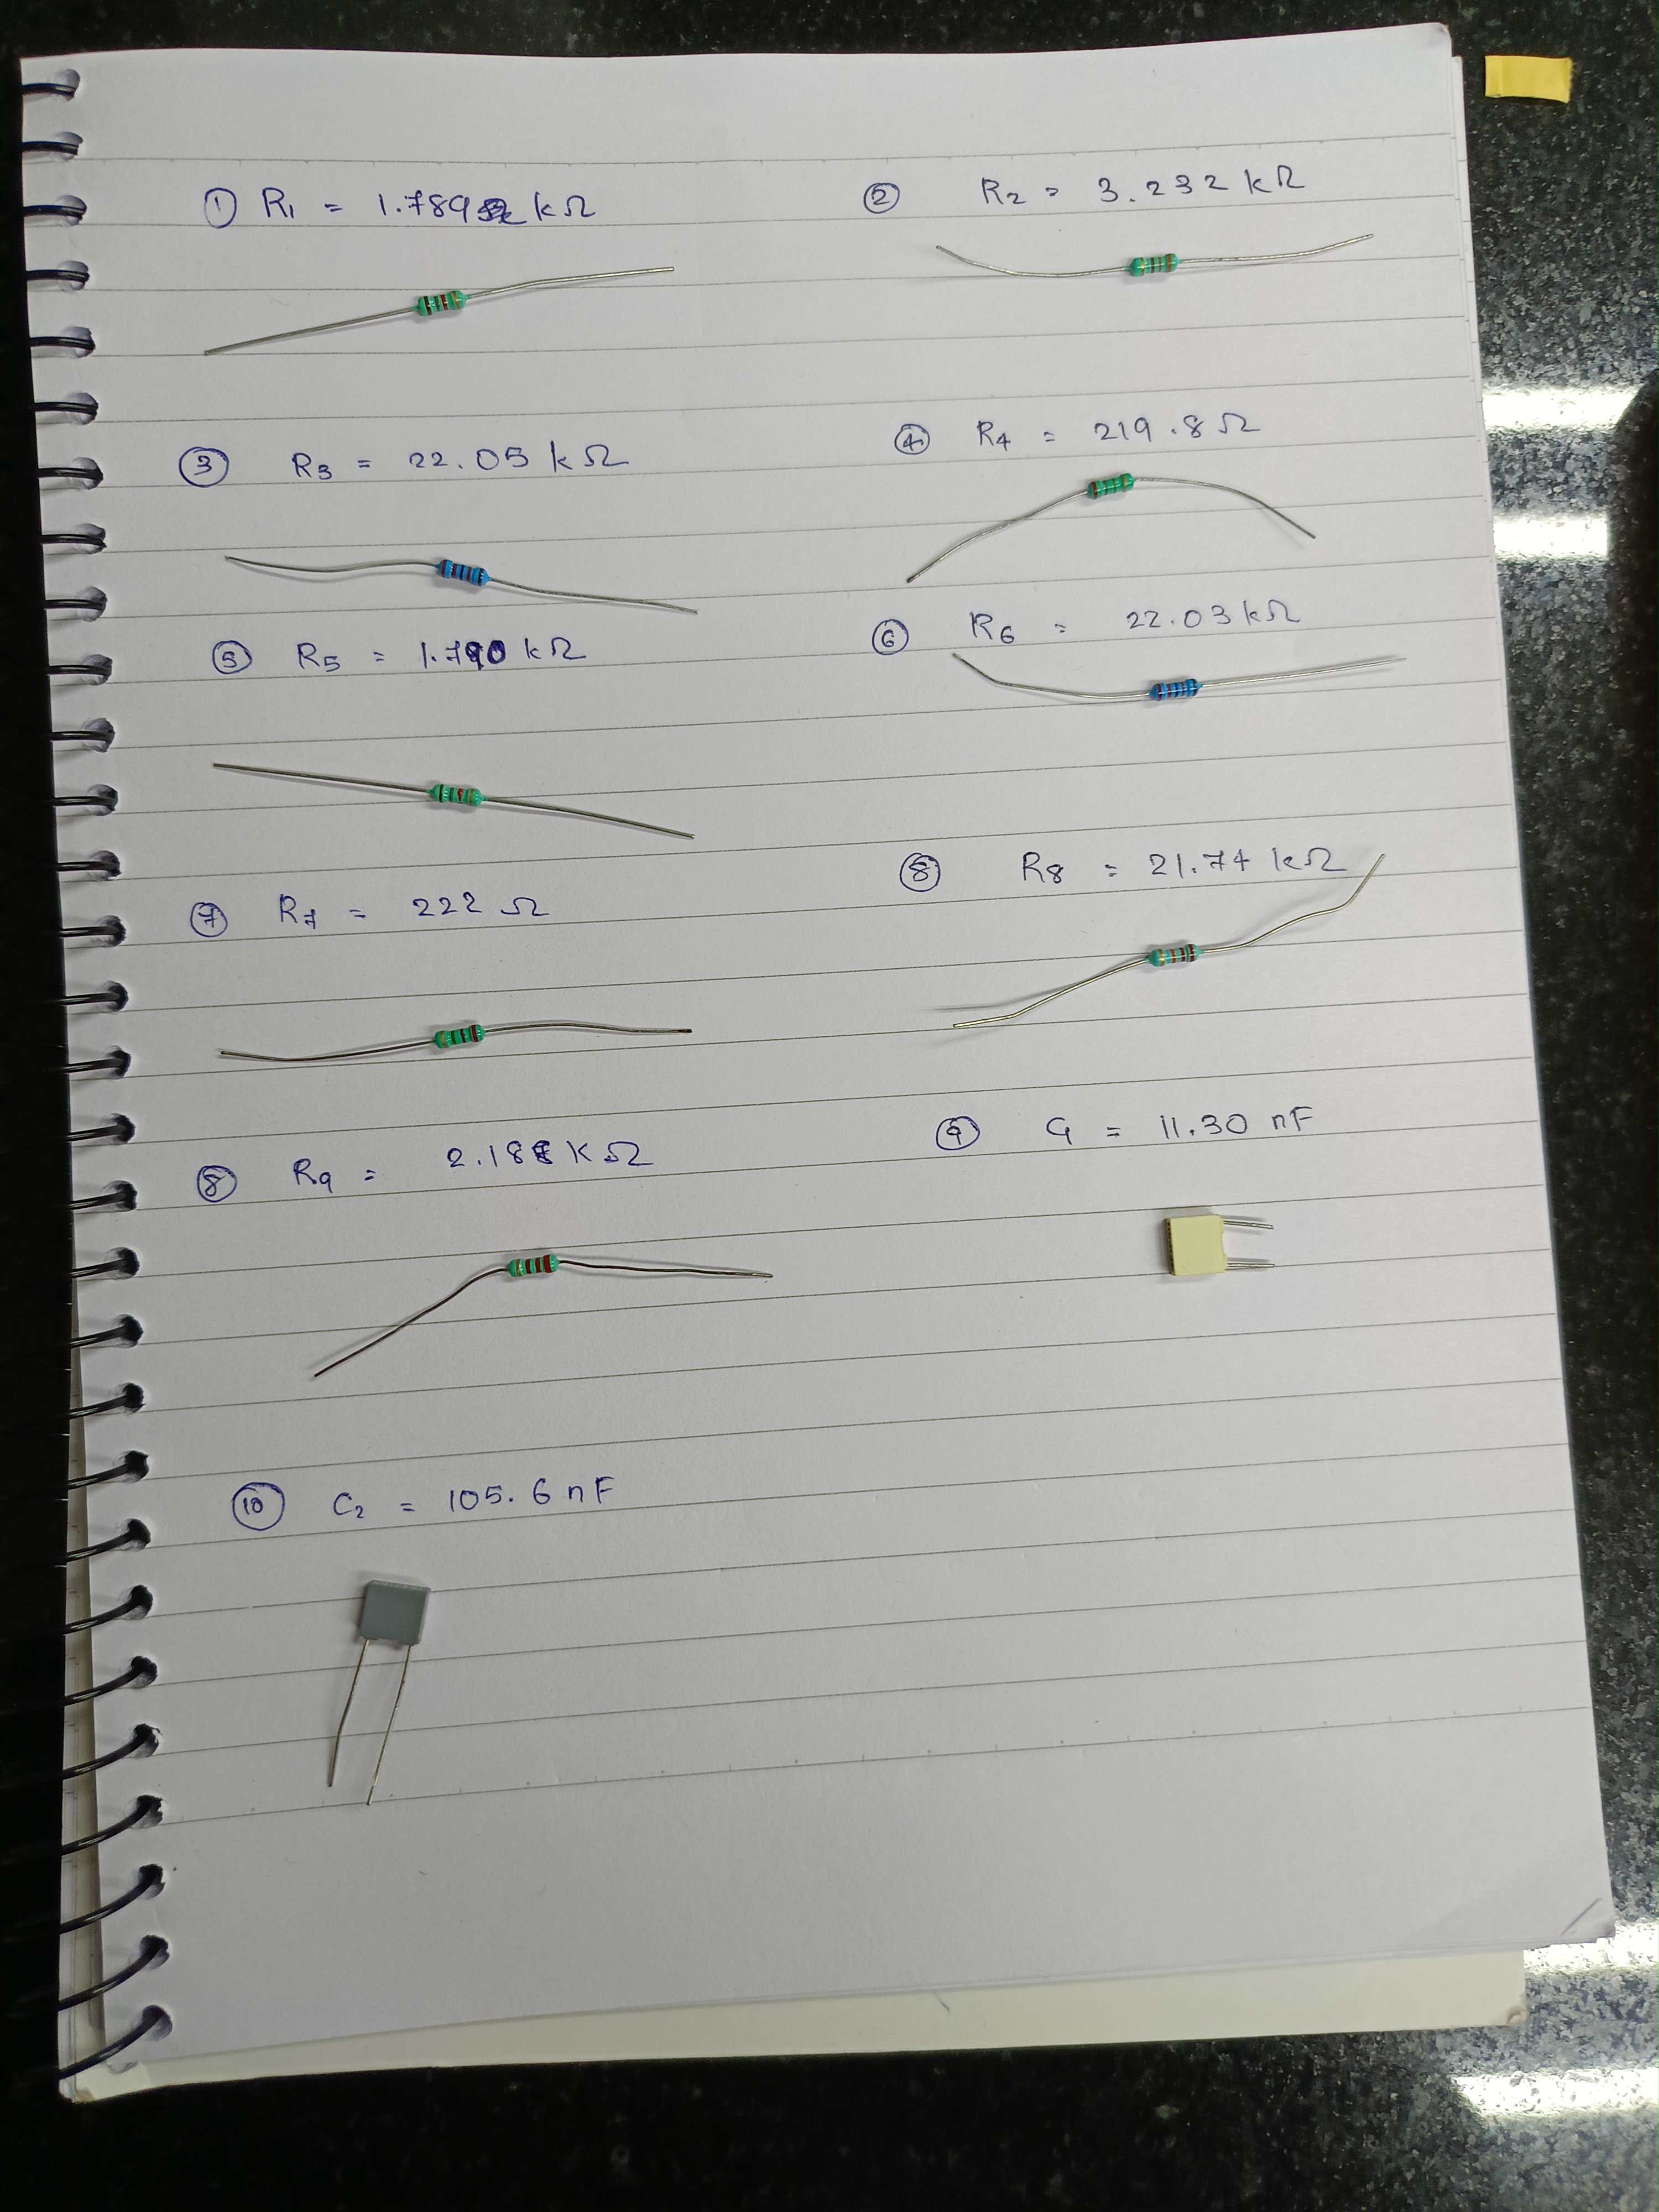 ① R₁ = 1.789 kΩ
② R₂ = 3.232 kΩ
③ R₃ = 22.05 kΩ
④ R₄ = 219.8 Ω
⑤ R₅ = 1.790 kΩ
⑥ R₆ = 22.03 kΩ
⑦ R₇ = 222 Ω
⑧ R₈ = 21.74 kΩ
⑧ R₉ = 2.188 kΩ
⑨ C₁ = 11.30 nF
⑩ C₂ = 105.6 nF